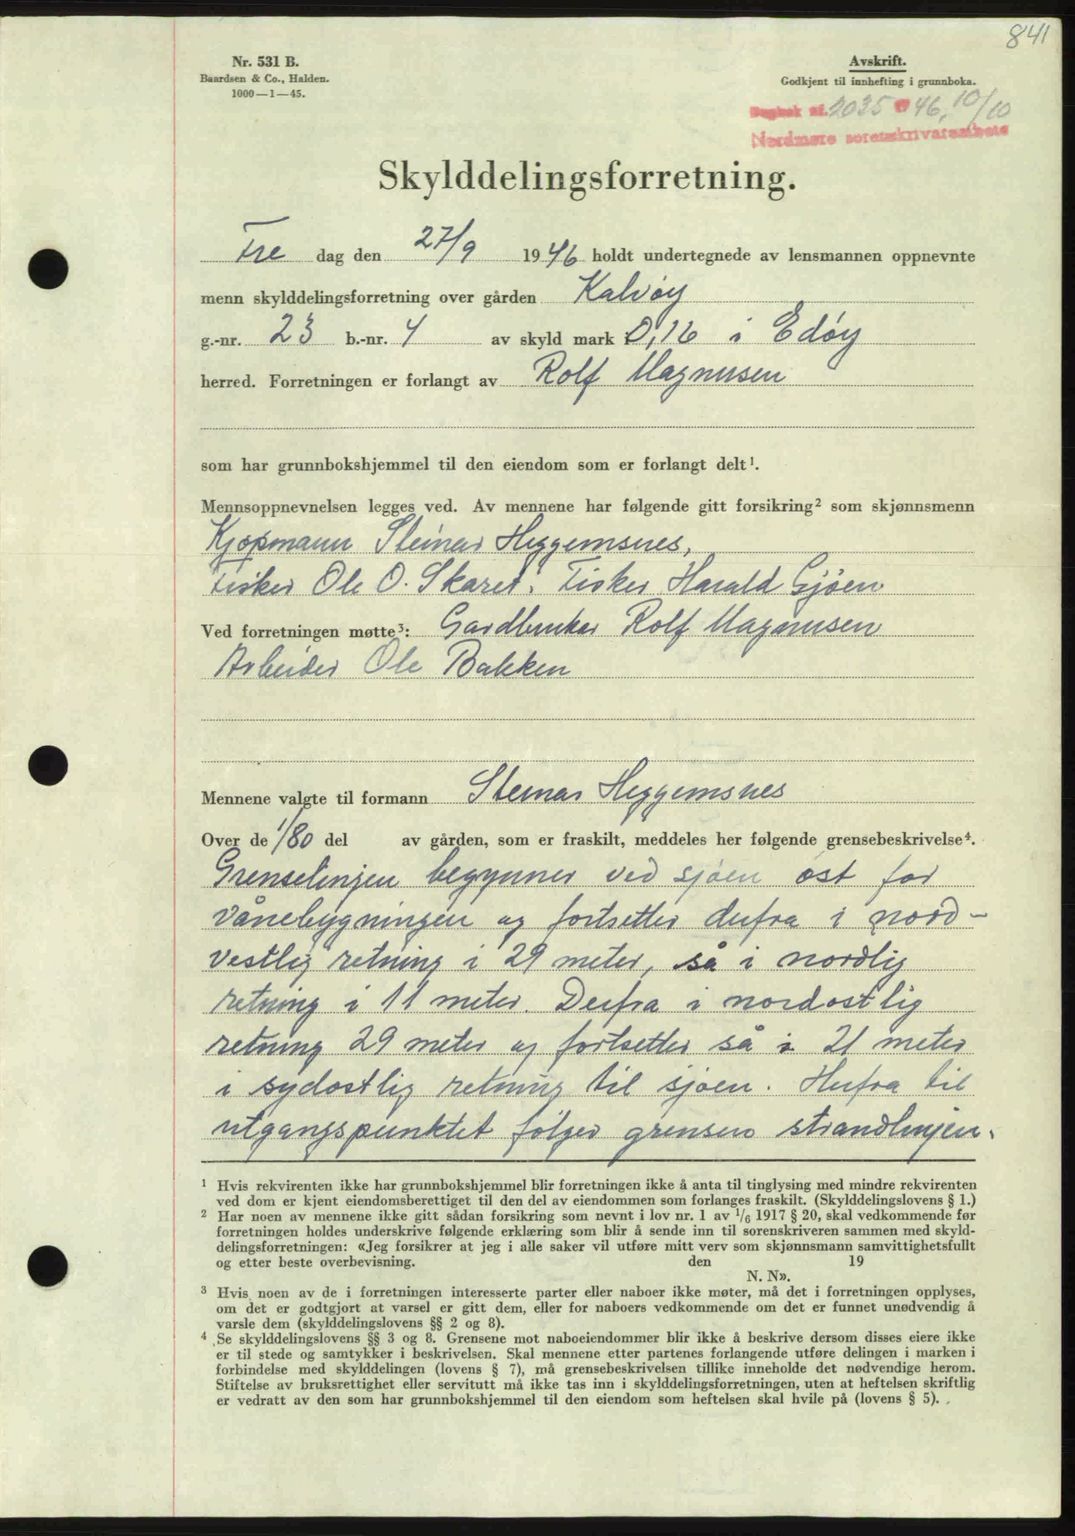 841
Nr. 531 B.
Baardsen & Co., Halden.
1000—1—45.
Avskrift.
Godkjent til innhefting i grunnboka.
Dagbok nr. 2035 19 46, 10/10
Nordmøre sorenskriverembete
Skylddelingsforretning.
Fre dag den 27/9 1946 holdt undertegnede av lensmannen oppnevnte
menn skylddelingsforretning over gården Kalvøy
g.-nr. 23 b.-nr. 4 av skyld mark 0,16 i Edøy
herred. Forretningen er forlangt av Rolf Magnusen
som har grunnbokshjemmel til den eiendom som er forlangt delt¹.
Mennsoppnevnelsen legges ved. Av mennene har følgende gitt forsikring² som skjønnsmenn
Kjøpmann Steinar Heggemsnes,
Fisker Ole O. Skaret, Fisker Harald Gjøen
Ved forretningen møtte³: Gardbruker Rolf Magnusen
Arbeider Ole Bakken
Mennene valgte til formann Steinar Heggemsnes
Over de 1/80 del av gården, som er fraskilt, meddeles her følgende grensebeskrivelse⁴.
Grenselinjen begynner ved sjøen øst for
vånebygningen og fortsetter derfra i nord-
vestlig retning i 29 meter, så i nordlig
retning i 11 meter. Derfra i nordøstlig
retning 29 meter og fortsetter så i 21 meter
i sydøstlig retning til sjøen. Herfra til
utgangspunktet følger grensen strandlinjen.
¹ Hvis rekvirenten ikke har grunnbokshjemmel blir forretningen ikke å anta til tinglysing med mindre rekvirenten
ved dom er kjent eiendomsberettiget til den del av eiendommen som forlanges fraskilt. (Skylddelingslovens § 1.)
² Har noen av mennene ikke gitt sådan forsikring som nevnt i lov nr. 1 av 1/6 1917 § 20, skal vedkommende før
forretningen holdes underskrive følgende erklæring som blir å sende inn til sorenskriveren sammen med skyld-
delingsforretningen: «Jeg forsikrer at jeg i alle saker vil utføre mitt verv som skjønnsmann samvittighetsfullt
og etter beste overbevisning. den 19
N. N».
³ Hvis noen av de i forretningen interesserte parter eller naboer ikke møter, må det i forretningen opplyses,
om det er godtgjort at varsel er gitt dem, eller for naboers vedkommende om det er funnet unødvendig å
varsle dem (skylddelingslovens §§ 2 og 8).
⁴ Se skylddelingslovens §§ 3 og 8. Grensene mot naboeiendommer blir ikke å beskrive dersom disses eiere ikke
er til stede og samtykker i beskrivelsen. Skal mennene etter partenes forlangende utføre delingen i marken i
forbindelse med skylddelingen (lovens § 7), må grensebeskrivelsen tillike inneholde det nødvendige herom.
Stiftelse av bruksrettighet eller servitutt må ikke tas inn i skylddelingsforretningen, uten at heftelsen skriftlig
er vedratt av den som har grunnbokshjemmel til den eiendom som heftelsen skal hvile på (lovens § 5).